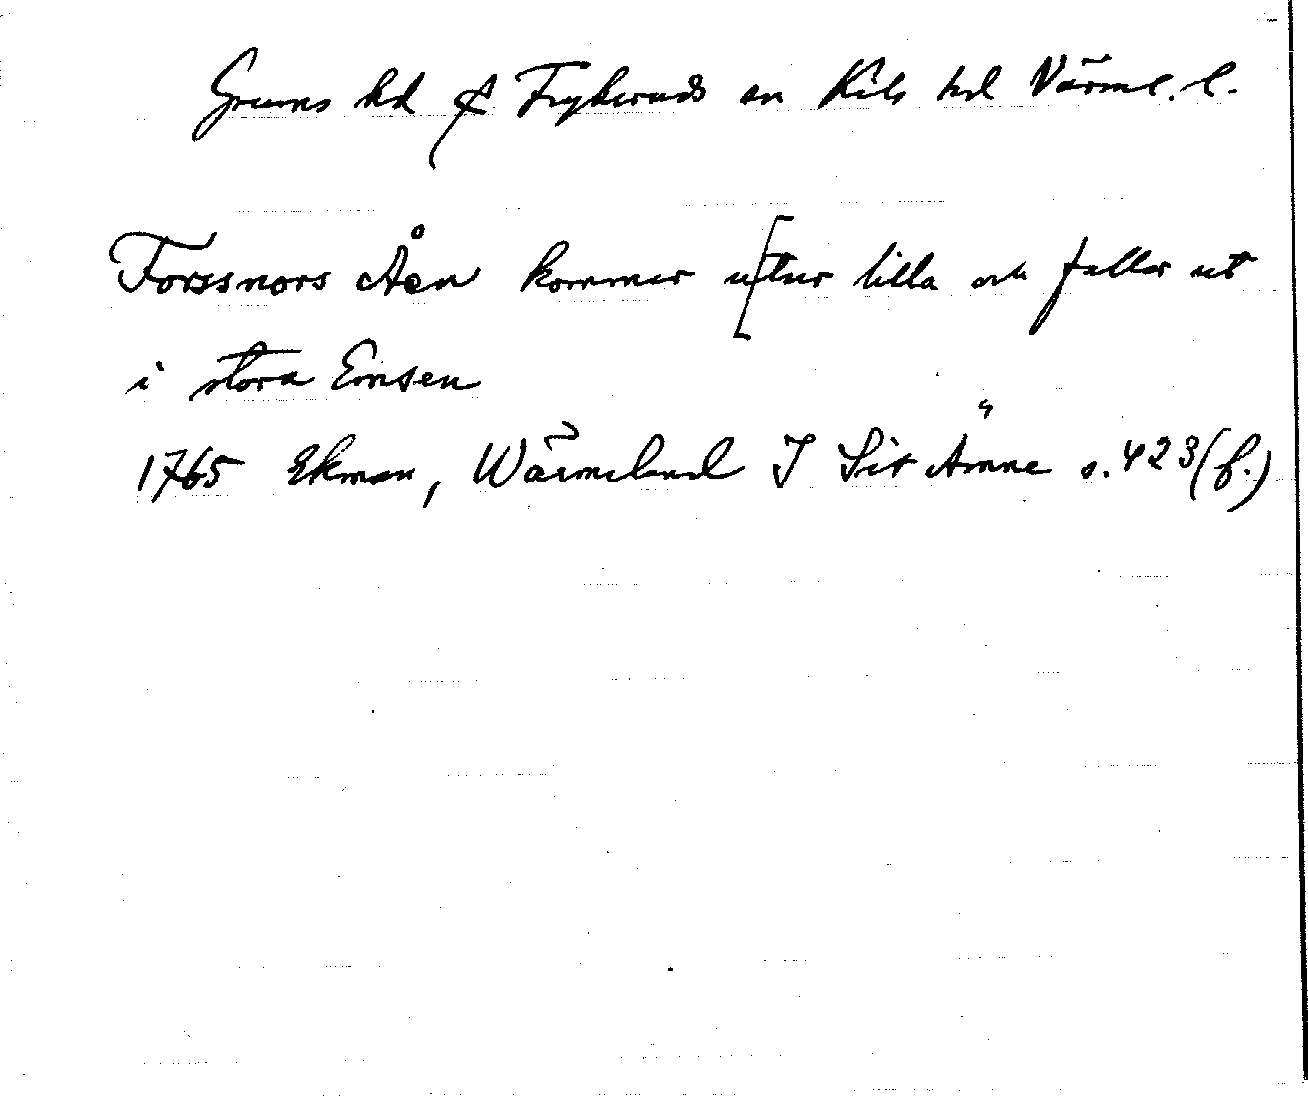 Grums hd & Frykeruds sn Kils hd Värml. l.
Forssnors Åen kommer u[tur lilla och faller ut
i stora Emsen
1765 Ekman, Wärmeland I Sit Ämne s. 423 (f.)